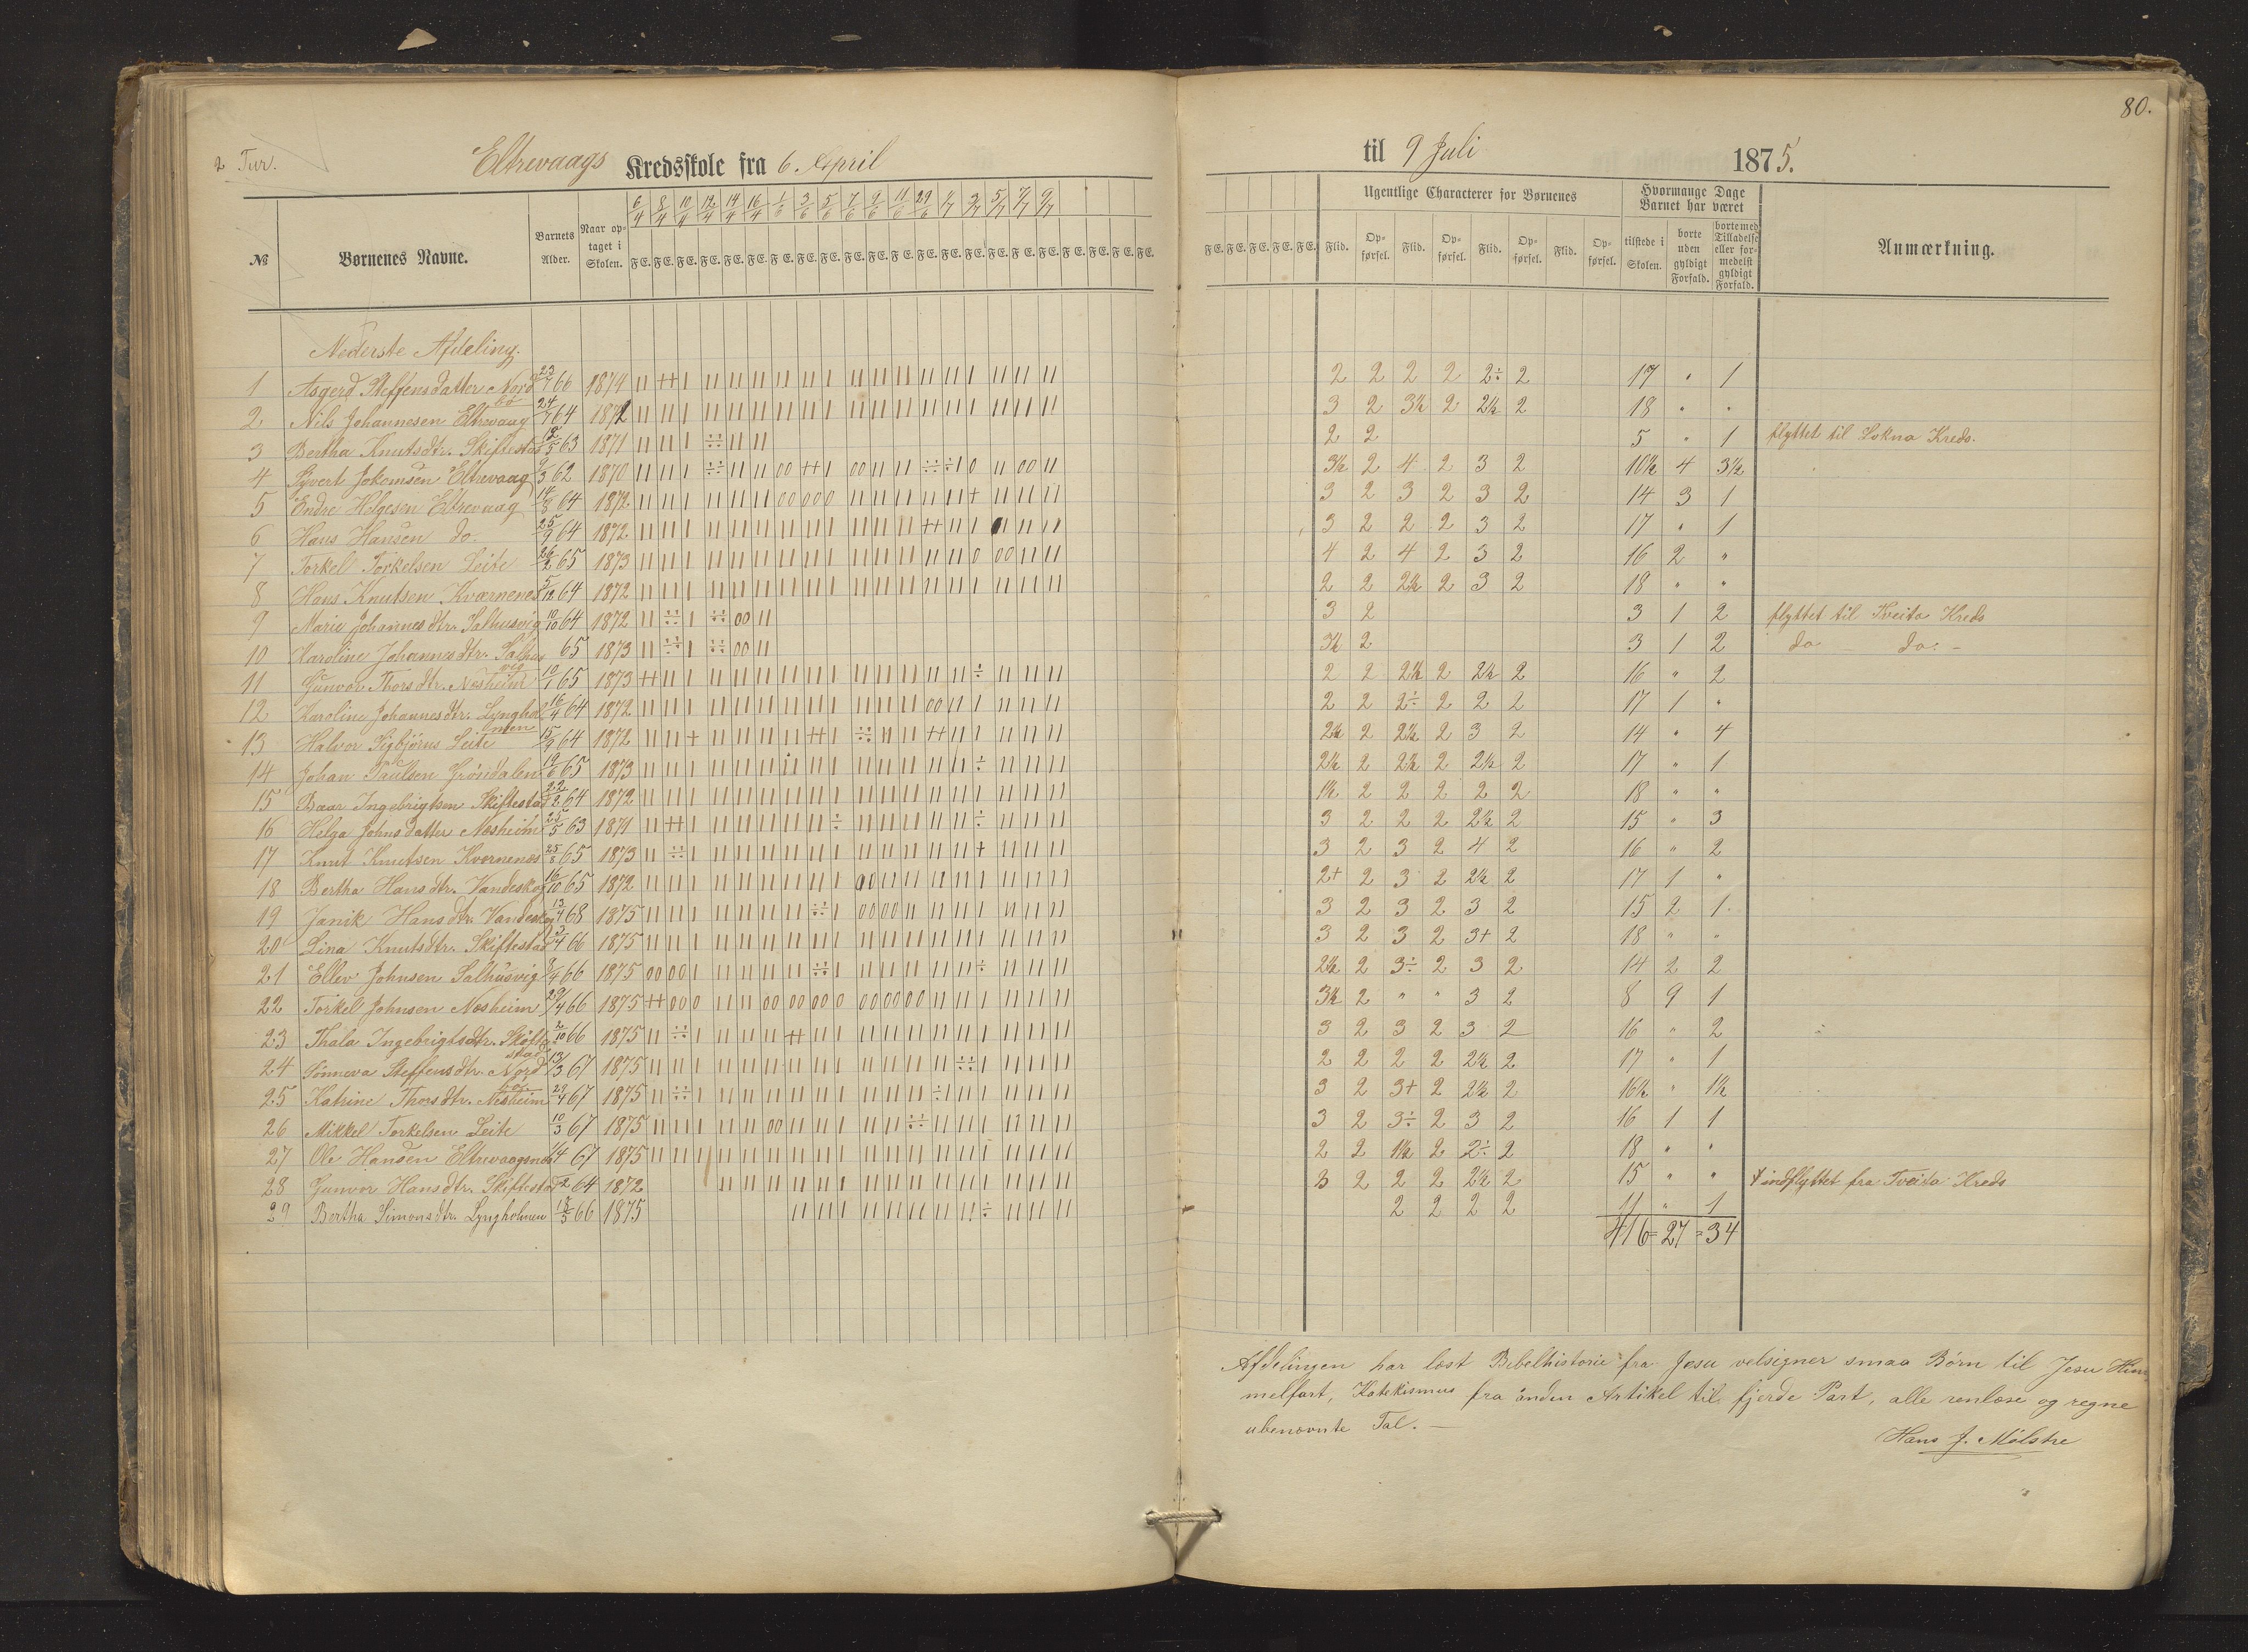 80.
2 Tur.
Eltrevaags Kredsskole fra 6. April til 9 Juli 1875.
№ Børnenes Navne. Barnets Alder. Naar optaget i Skolen. 6/4 8/4 10/4 12/4 14/4 16/4 1/6 3/6 5/6 7/6 9/6 11/6 29/6 1/7 3/7 5/7 7/7 9/7
Ugentlige Characterer for Børnenes
Hvormange Dage Barnet har været
Flid. Opførsel. Flid. Opførsel. Flid. Opførsel. Flid. Opførsel. tilstede i Skolen. borte uden gyldigt Forfald. borte med Tilladelse eller formedelst gyldigt Forfald. Anmærkning.
Nederste Afdeling.
1 Asgerd Steffensdatter Nordbö 23/7 66 1874 2 2 2 2 2÷ 2 17 " 1
2 Nils Johannesen Eltrevaag 24/7 64 1872 3 2 3½ 2 2½ 2 18 " "
3 Bertha Knutsdtr. Skiftestad 12/5 63 1871 2 2 5 " 1 flyttet til Lokna Kreds.
4 Syvert Jokomsen Eltrevaag 9/3 62 1870 3½ 2 4 2 3 2 10½ 4 3½
5 Endre Helgesen Eltrevaag 14/8 64 1872 3 2 3 2 3 2 14 3 1
6 Hans Hansen do. 25/9 64 1872 3 2 2 2 3 2 17 " 1
7 Torkel Torkelsen Leite 26/2 65 1873 4 2 4 2 3 2 16 2 "
8 Hans Knutsen Kværnenes 5/12 64 1872 2 2 2½ 2 3 2 18 " "
9 Marie Johannesdtr. Salhusvig 10/10 64 1872 3 2 3 1 2 flyttet til Tveita Kreds
10 Karoline Johannesdtr. Salhusvig 65 1873 3½ 2 3 1 2 do – do. –
11 Gunvor Thorsdtr. Nesheim 10/1 65 1873 2 2 2½ 2 2½ 2 16 " 2
12 Karoline Johannesdtr. Lyngholmen 16/4 64 1872 2 2 2÷ 2 2 2 17 1 "
13 Halvor Sigbjörns Leite 15/9 64 1872 2½ 2 2½ 2 3 2 14 " 4
14 Johan Paulsen Grönsdalen 19/6 65 1873 2½ 2 2½ 2 2½ 2 17 " 1
15 Baar Ingebrigtsen Skiftestad 22/2 64 1872 1½ 2 2 2 2 2 18 " "
16 Helga Johnsdatter Nesheim 25/5 63 1871 3 2 2 2 2½ 2 15 " 3
17 Knut Knutsen Kvernenes 25/8 65 1873 3 2 3 2 4 2 16 " 2
18 Bertha Hansdtr. Vandeskog 16/10 65 1872 2+ 2 3 2 2½ 2 17 1 "
19 Janik Hansdtr. Vandeskog 13/4 68 1875 3 2 3 2 3 2 15 2 1
20 Lina Knutsdtr. Skiftestad 3/4 66 1875 3 2 3 2 3+ 2 18 " "
21 Ellev Johnsen Salhusvig 8/4 66 1875 2½ 2 3÷ 2 3 2 14 2 2
22 Torkel Johnsen Nesheim 29/4 66 1875 3½ 2 " " 3 2 8 9 1
23 Thala Ingebrigtsdtr. Skiftestad 2/10 66 1875 3 2 3 2 3 2 16 " 2
24 Sønneva Steffensdtr. Nordbö 13/3 67 1875 2 2 2 2 2½ 2 17 " 1
25 Katrine Thorsdtr. Nesheim 29/4 67 1875 3 2 3+ 2 2½ 2 16½ " 1½
26 Mikkel Torkelsen Leite 10/3 67 1875 3 2 3÷ 2 3 2 16 1 1
27 Ole Hansen Eltrevaagsnes 1/4 67 1875 2 2 1½ 2 2÷ 2 18 " "
28 Gunvor Hansdtr. Skiftestad 64 1872 3 2 2 2 2½ 2 15 " " indflyttet fra Tveita Kreds
29 Bertha Simonsdtr. Lyngholmen 13/5 66 1875 2 2 2 2 11 " 1
416 = 27 = 34
Afdelingen har læst Bibelhistorie fra Jesu velsigner smaa Börn til Jesu Him-
melfart, Katekismus fra anden Artikel til fjerde Part, alle renlæse og regne
ubenævnte Tal. –
Hans J. Mölstre